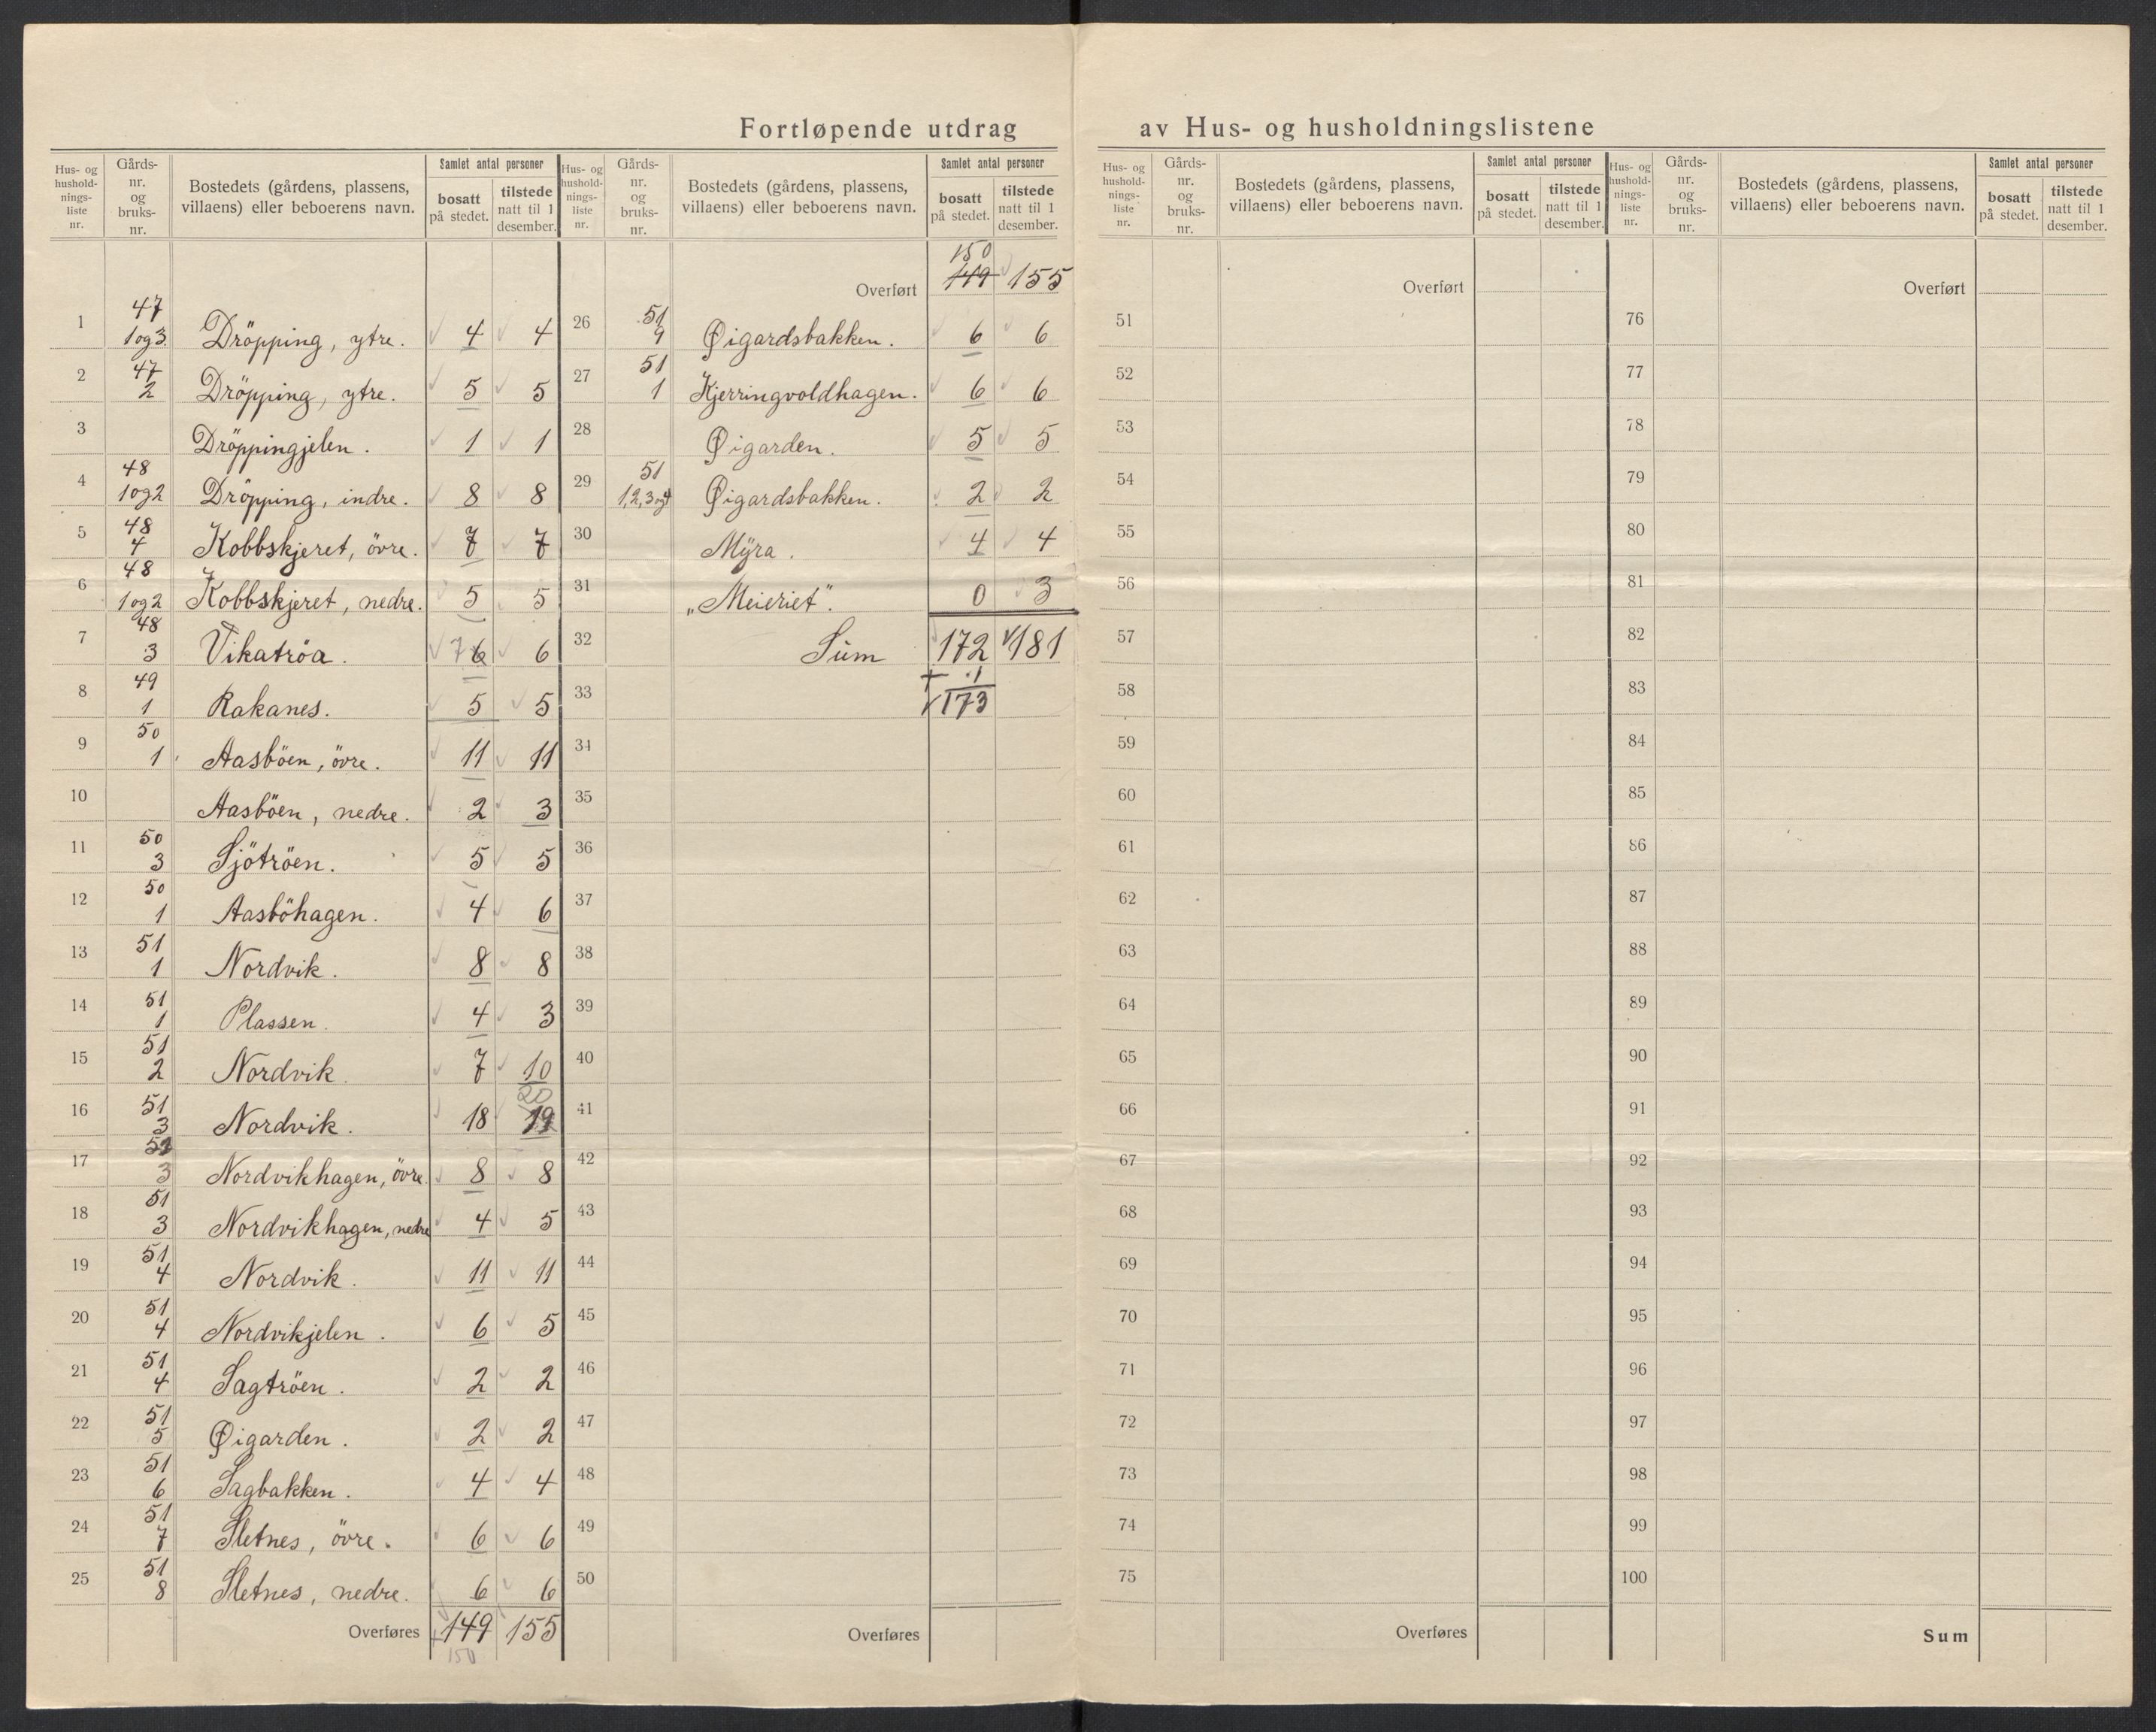 Fortløpende utdrag av Hus- og husholdningslistene
Hus- og husholdnings-liste nr. | Gårds-nr. og bruks-nr. | Bostedets (gårdens, plassens, villaens) eller beboerens navn. | Samlet antal personer | bosatt på stedet. | tilstede natt til 1 desember.
1 | 47 1og3. | Dröpping, ytre. | 4 | 4
2 | 47 2 | Dröpping, ytre. | 5 | 5
3 | Dröppingjelen. | 1 | 1
4 | 48 1og2 | Dröpping, indre. | 8 | 8
5 | 48 4 | Kobbskjeret, övre. | 7 | 7
6 | 48 1og2 | Kobbskjeret, nedre. | 5 | 5
7 | 48 3 | Vikatröa. | 7 6 | 6
8 | 49 1 | Rakanes. | 5 | 5
9 | 50 1 | Aasböen, övre. | 11 | 11
10 | Aasböen, nedre. | 2 | 3
11 | 50 3 | Sjötröen. | 5 | 5
12 | 50 1 | Aasböhagen. | 4 | 6
13 | 51 1 | Nordvik. | 8 | 8
14 | 51 1 | Plassen. | 4 | 3
15 | 51 2 | Nordvik. | 7 | 10
16 | 51 3 | Nordvik. | 18 | 20 19
17 | 3 | Nordvikhagen, övre. | 8 | 8
18 | 51 3 | Nordvikhagen, nedre | 4 | 5
19 | 51 4 | Nordvik. | 11 | 11
20 | 51 4 | Nordvikjelen. | 6 | 5
21 | 51 4 | Sagtröen. | 2 | 2
22 | 51 5 | Øigarden. | 2 | 2
23 | 51 6 | Sagbakken. | 4 | 4
24 | 51 7 | Sletnes, övre. | 6 | 6
25 | 51 8 | Sletnes, nedre. | 6 | 6
Overføres | 149 | 155
150
Hus- og husholdnings-liste nr. | Gårds-nr. og bruks-nr. | Bostedets (gårdens, plassens, villaens) eller beboerens navn. | Samlet antal personer | bosatt på stedet. | tilstede natt til 1 desember.
150
Overført | 149 | 155
26 | 51 9 | Øigardsbakken. | 6 | 6
27 | 51 1 | Kjerringvoldhagen. | 6 | 6
28 | Øigarden. | 5 | 5
29 | 51 1,2,3og4 | Øigardsbakken. | 2 | 2
30 | Mÿra. | 4 | 4
31 | „Meieriet". | 0 | 3
32 | Sum | 172 | 181
+ 1
33 | 173
34
35
36
37
38
39
40
41
42
43
44
45
46
47
48
49
50
Overføres
Hus- og husholdnings-liste nr. | Gårds-nr. og bruks-nr. | Bostedets (gårdens, plassens, villaens) eller beboerens navn. | Samlet antal personer | bosatt på stedet. | tilstede natt til 1 desember.
Overført
51
52
53
54
55
56
57
58
59
60
61
62
63
64
65
66
67
68
69
70
71
72
73
74
75
Overføres
Hus- og husholdnings-liste nr. | Gårds-nr. og bruks-nr. | Bostedets (gårdens, plassens, villaens) eller beboerens navn. | Samlet antal personer | bosatt på stedet. | tilstede natt til 1 desember.
Overført
76
77
78
79
80
81
82
83
84
85
86
87
88
89
90
91
92
93
94
95
96
97
98
99
100
Sum